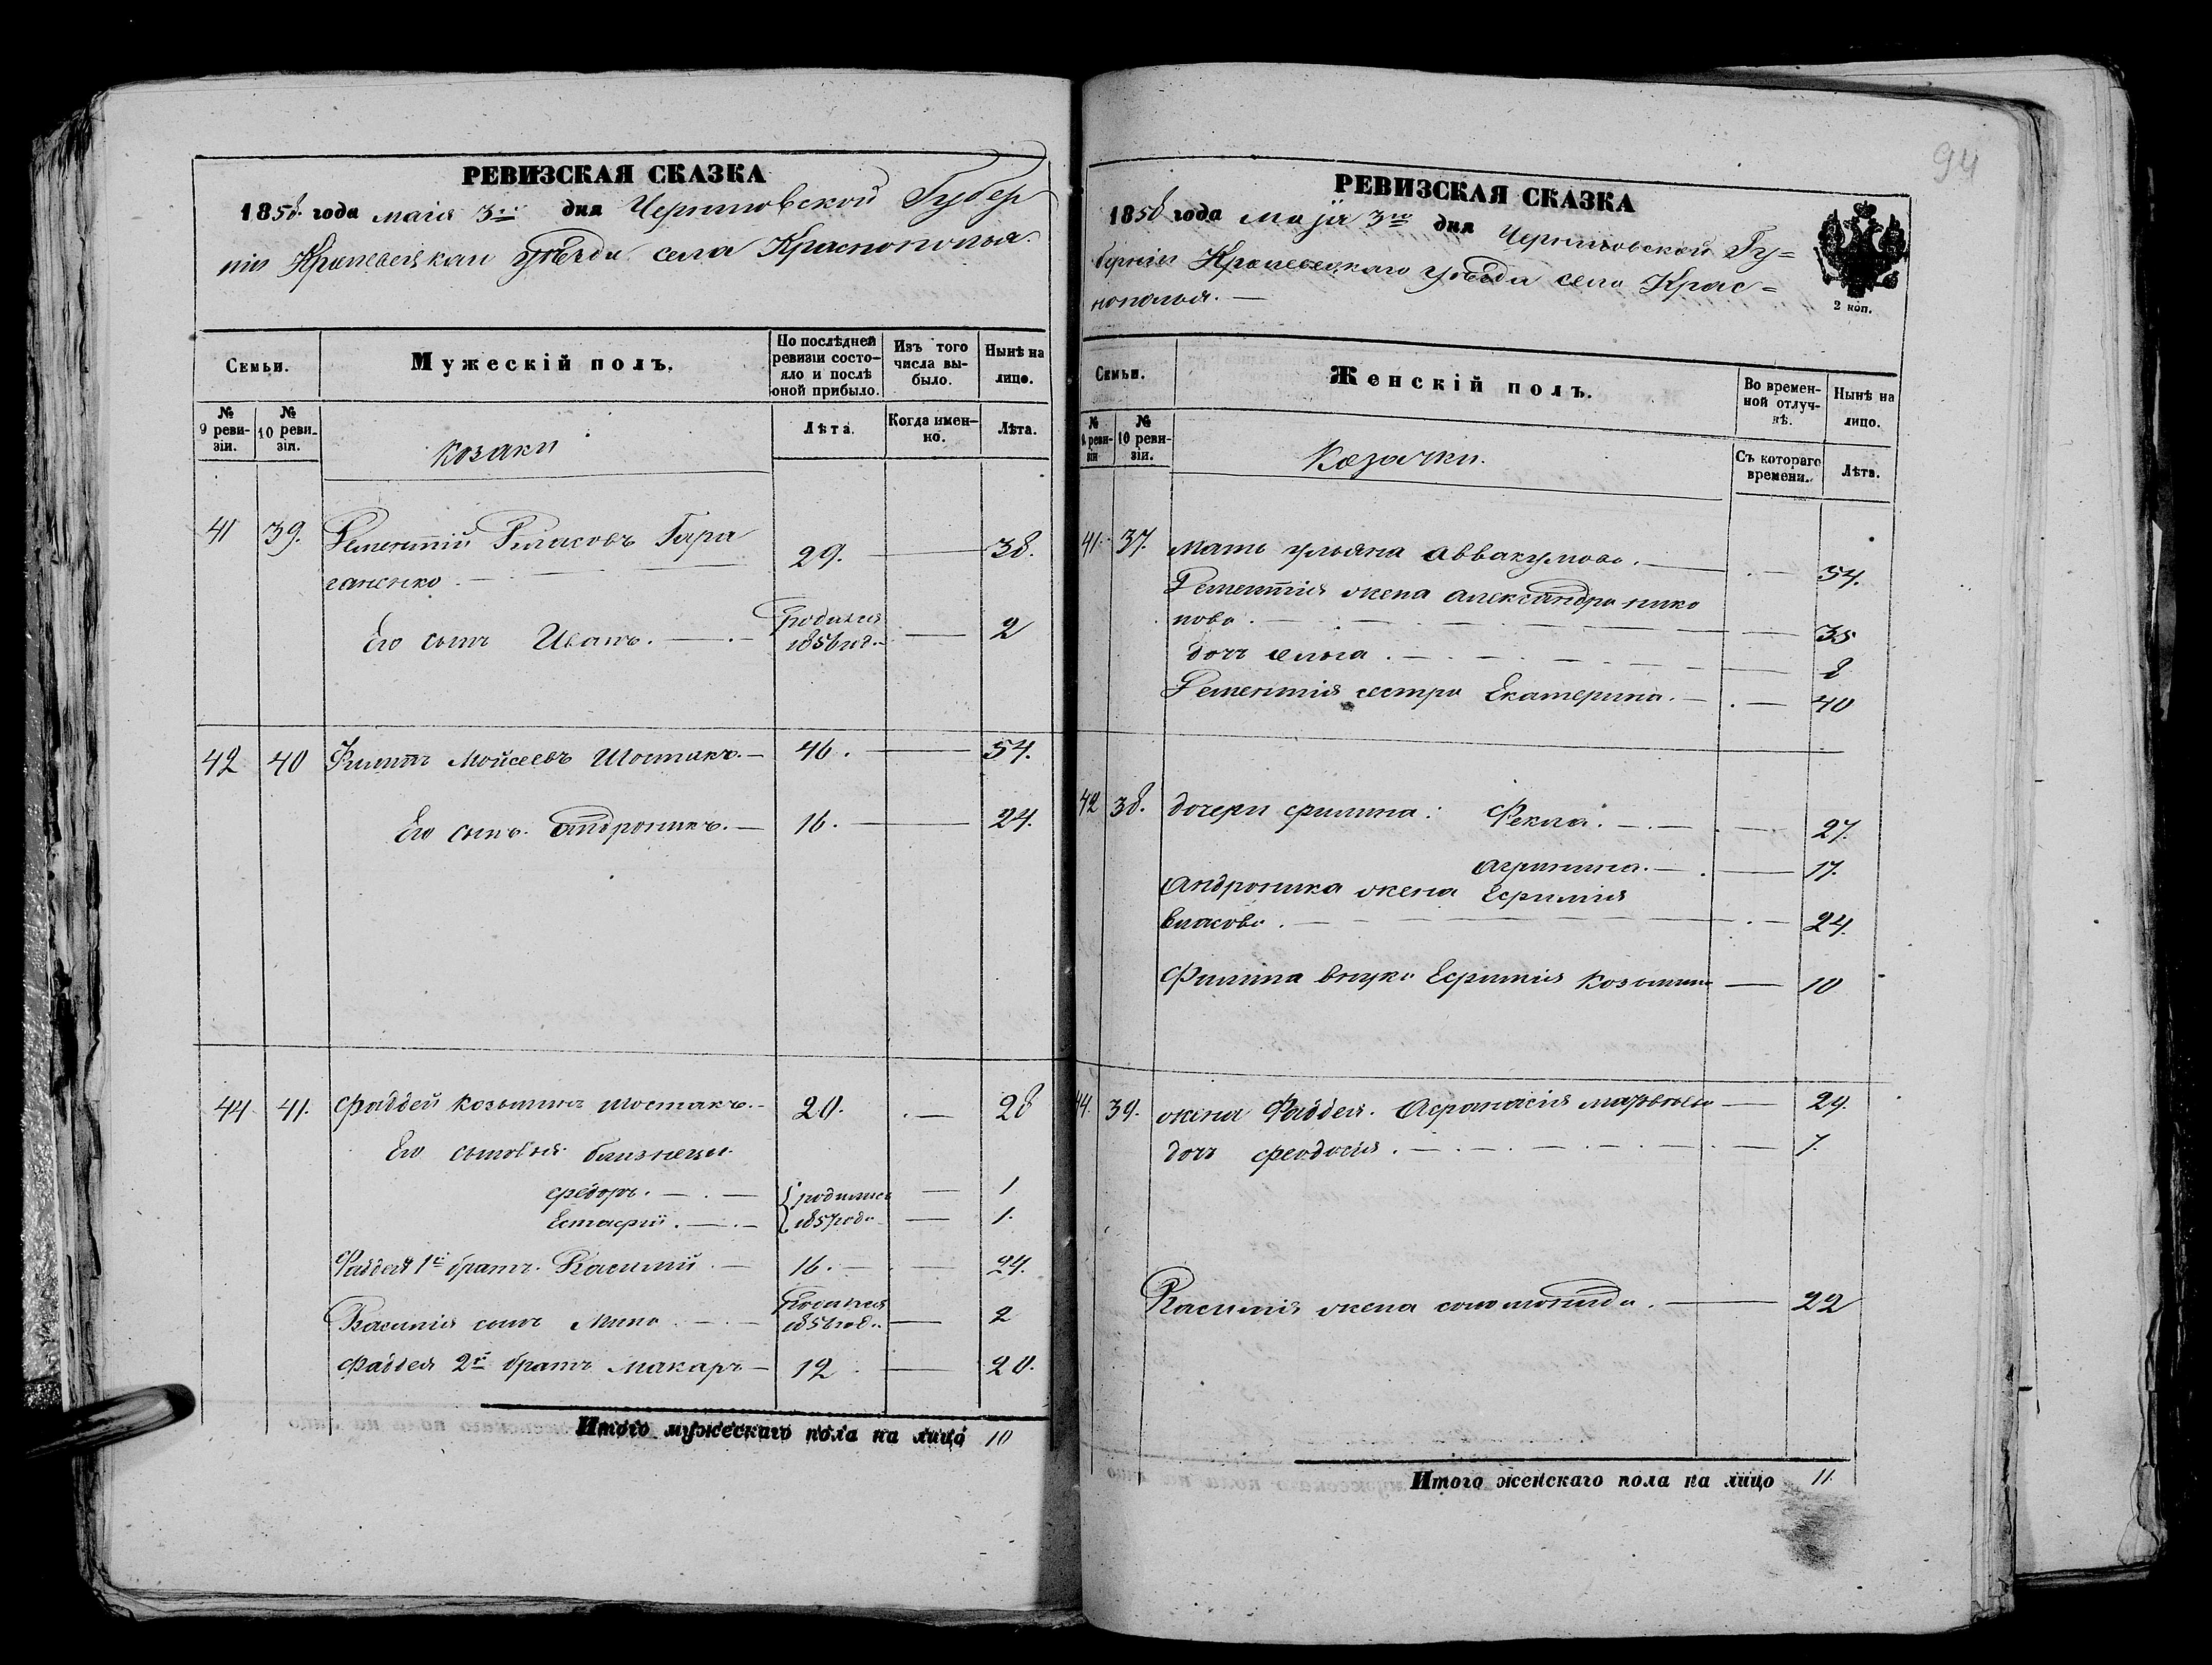 РЕВИЗСКАЯ СКАЗКА
1858 года маія 3го дня Черниговской Губер
ніи Кролевецкаго уѣзда села Краснополья.
Семьи.
Мужескій полъ.
По послѣдней ревизіи состояло и послѣ оной прибыло.
Изъ того числа выбыло.
Нынѣ на лицо.
№ 9 ревизіи.
№ 10 ревизіи.
Козаки
Лѣта.
Когда именно.
Лѣта.
41 39. Терентій Власовъ Тара
ганенко. 29. 38.
Его сынъ Иванъ. родился 1856 год. 2
42 40 Филиппъ Мойсеевъ Шостакъ. 46. 54.
Его сынъ Андроникъ. 16. 24.
44 41. Фаддей Козьминъ Шостакъ. 20. 28
Его сыновья близнецы
Федоръ. родились 1
Естафій. 1857 года 1.
Фаддея 1й братъ Василій 16. 24.
Василія сынъ Мина родился 1856 год. 2
Фаддея 2й братъ Макаръ 12 20.
Итого мужескаго пола на лицо 10
94
РЕВИЗСКАЯ СКАЗКА
1858 года маія 3го дня Черниговской Гу=
берніи Кролевецкаго уѣзда села Крас=
нополья.
2 коп.
Семьи.
Женскій полъ.
Во временной отлучкѣ.
Нынѣ на лицо.
№ 9 ревизіи
№ 10 ревизіи.
Козачки.
Съ котораго времени.
Лѣта.
41. 37. Мать Ульяна Аввакумова. 54.
Терентія жена Александра Нико
нова. 35
дочь 8
Терентія сестра Екатерина. 40
42 38. дочери Филипа: Фекла. 27.
Агрипина. 17.
Андроника жена Ефимія
Власова. 24.
Филипа внука Ефимія Козьмина 10
44. 39. жена Фаддея. Афанасія 24.
дочь Феодосія. 7.
Василія жена Соломонида. 22
Итого женскаго пола на лицо 11.